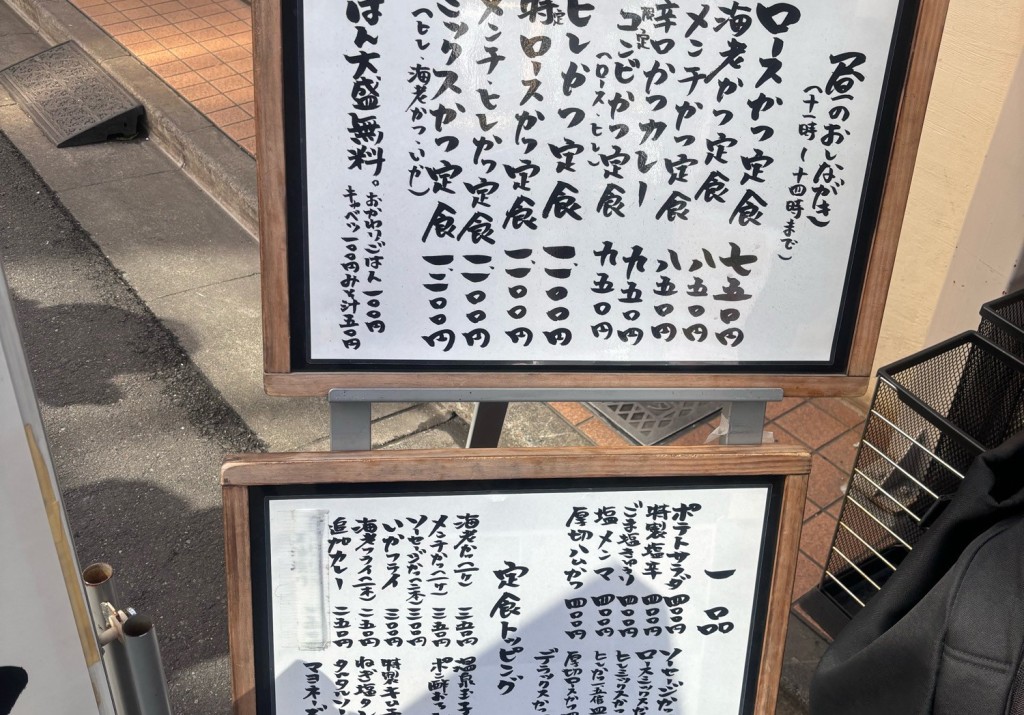 昼のおしながき
(十一時〜十四時まで)
ロースかつ定食 七五〇円
海老かつ定食 八五〇円
メンチかつ定食 八五〇円
辛口かつカレー 九五〇円
コンビかつ定食 九五〇円
(ロース・ヒレ)
ヒレかつ定食
特ロースかつ定食
メンチ・ヒレかつ定食
ミックスかつ定食
(ヒレ・海老かつ・いか)
はん大盛無料。
おかわりごはん一〇〇円
キャベツ一〇〇円みそ汁五〇円
一品
ポテトサラダ 四〇〇円
特製塩辛 四〇〇円
ごま塩きゅうり 四〇〇円
塩メンマ 四〇〇円
厚切ハムかつ 四〇〇円
ソーセージか
ロースミックスか
ヒレミックスか
厚切ロースかつ
デラックスかつ
定食トッピング
海老かつ(一ヶ) 三五〇円
メンチかつ(一ヶ) 三五〇円
ソーセージかつ(一本) 二〇〇円
いかフライ 三〇〇円
海老フライ(一本) 三五〇円
追加カレー 三五〇円
温泉玉子
ポン酢おろ
特製キムチ
ねぎ塩タ
タルタルソー
マヨネーズ